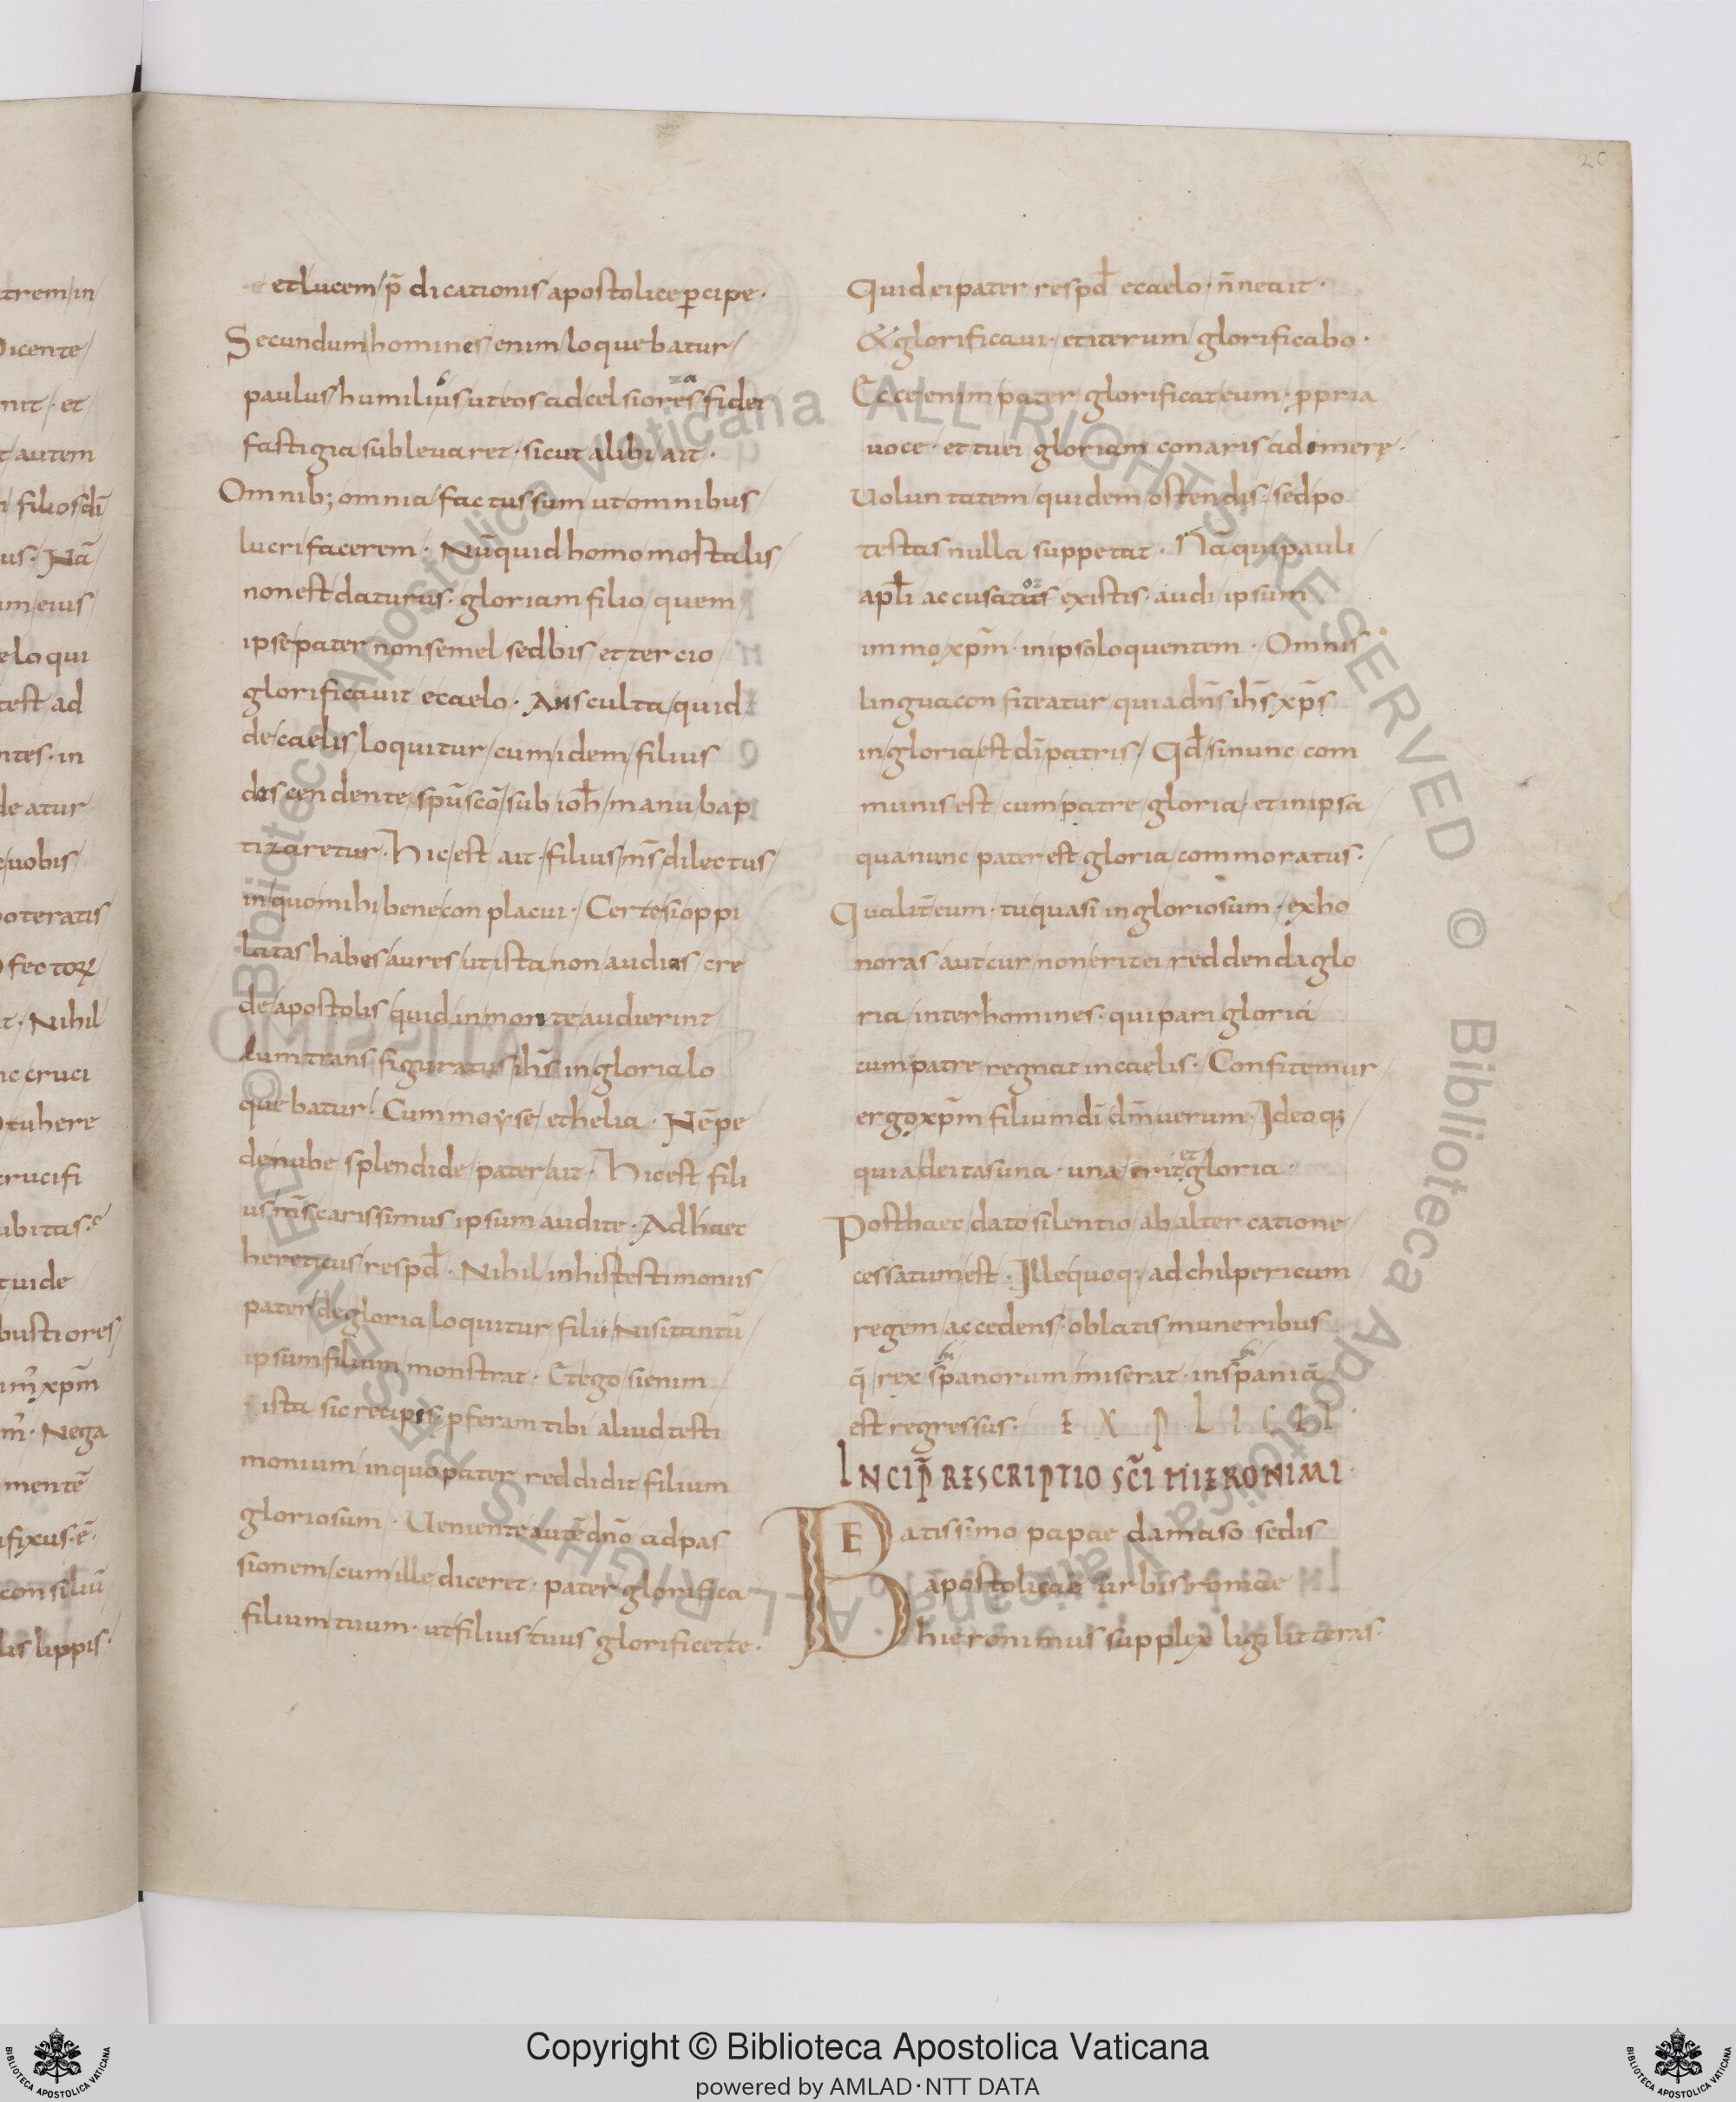 trem in
icente
nit · et
t autem
filios dī
us · Nā
um eius
eloqui
test ad
ntes · in
deatur
uobis
poteratis
fectoꝝ
t · Nihil
nc cruci
tu here
crucifi
ubitas ·
tuide
bustiores
xp̄m
Nega
mentē
fixus · ē ·
consiliū
lis lippis ·
20
et lucem p̄dicationis apostolice ꝑcipe ·
Secundum homines enim loquebatur
paulus humiliꝰus ut eos ad celsiores za fidei
fastigia subleuaret · sicut alibi ait ·
Omnib; omnia factus sum ut omnibus
lucri facerem · Nūquid homo mortalis
non est daturus · gloriam filio quem
ipse pater non semel sed bis et tercio
glorificauit e caelo · Ausculta quid
de caelis loquitur cum idem filius
descendente sp̄u sc̄o sub ioħ manu bap
tizaretur · Hic est ait · filius m̄s dilectus
in quo mihi bene conplacui · Certe si oppi
latas habes aures ut ista non audias cre
de apostolis quid in monte audierint
cum transfiguratus ih̄s in gloria lo
quebatur · Cum moẏse et helia · Nēpe
de nube splendide pater ait · Hic est fili
us m̄s carissimus ipsum audite · Ad haec
hereticus respđ · Nihil in his testimoniis
pater de gloria loquitur filii · Nisi tantū
ipsum filium monstrat · Et ego si enim
ista sic recipis · ꝓferam tibi aliud testi
monium in quo pater reddidit filium
gloriosum · Ueniente autē dn̄o ad pas
sionem cum ille diceret · pater glorifica
filium tuum · ut filius tuus glorificet te ·
Quid ei pater respđ e caelo · n̄ne ait ·
& glorificaui · et iterum glorificabo ·
Ecce enim pater glorificat eum · ꝓpria
uoce · et tu ei gloriam conaris adimerę ·
Uoluntatem quidem ostendis · sed po
testas nulla suppetat · Nā qui pauli
apłi accusatus or existis · audi ipsum
immo xp̄m · in ipso loquentem · Omnis
lingua confiteatur quia dn̄s ih̄s xp̄s
in gloria est dī patris · Qđ si nunc com
munis est cum patre gloria · et in ipsa
qua nunc pater est gloria commoratus ·
Qualit̄ eum · tu quasi ingloriosum · exho
noras aut cur non erit ei reddenda glo
ria inter homines · qui pari gloria
cum patre regnat in caelis · Confitemur
ergo xp̄m filium dī dm̄ uerum · Ideoq;
quia deitas una · una erit et gloria ·
Post haec dato silentio ab altercatione
cessatum est · Ille quoq; ad chilpericum
regem accedens · oblatis muneribus
q̄ rex hi spanorum miserat · in hi spaniā
est regressus · EXPLICIT ·
INCIP̄ RESCRIPTIO SC̄I HIERONIMI ·
BEatissimo papae damaso sedis
apostolicae urbis romae
hieronimus supplex ligi litteras ·
© Biblioteca Apostolica Vaticana ALL RIGHTS RESERVED © Biblioteca Apostolica Vaticana. ALL RIGHTS RESERVED
Copyright © Biblioteca Apostolica Vaticana
powered by AMLAD·NTT DATA
BIBLIOTECA APOSTOLICA VATICANA
BIBLIOTECA APOSTOLICA VATICANA